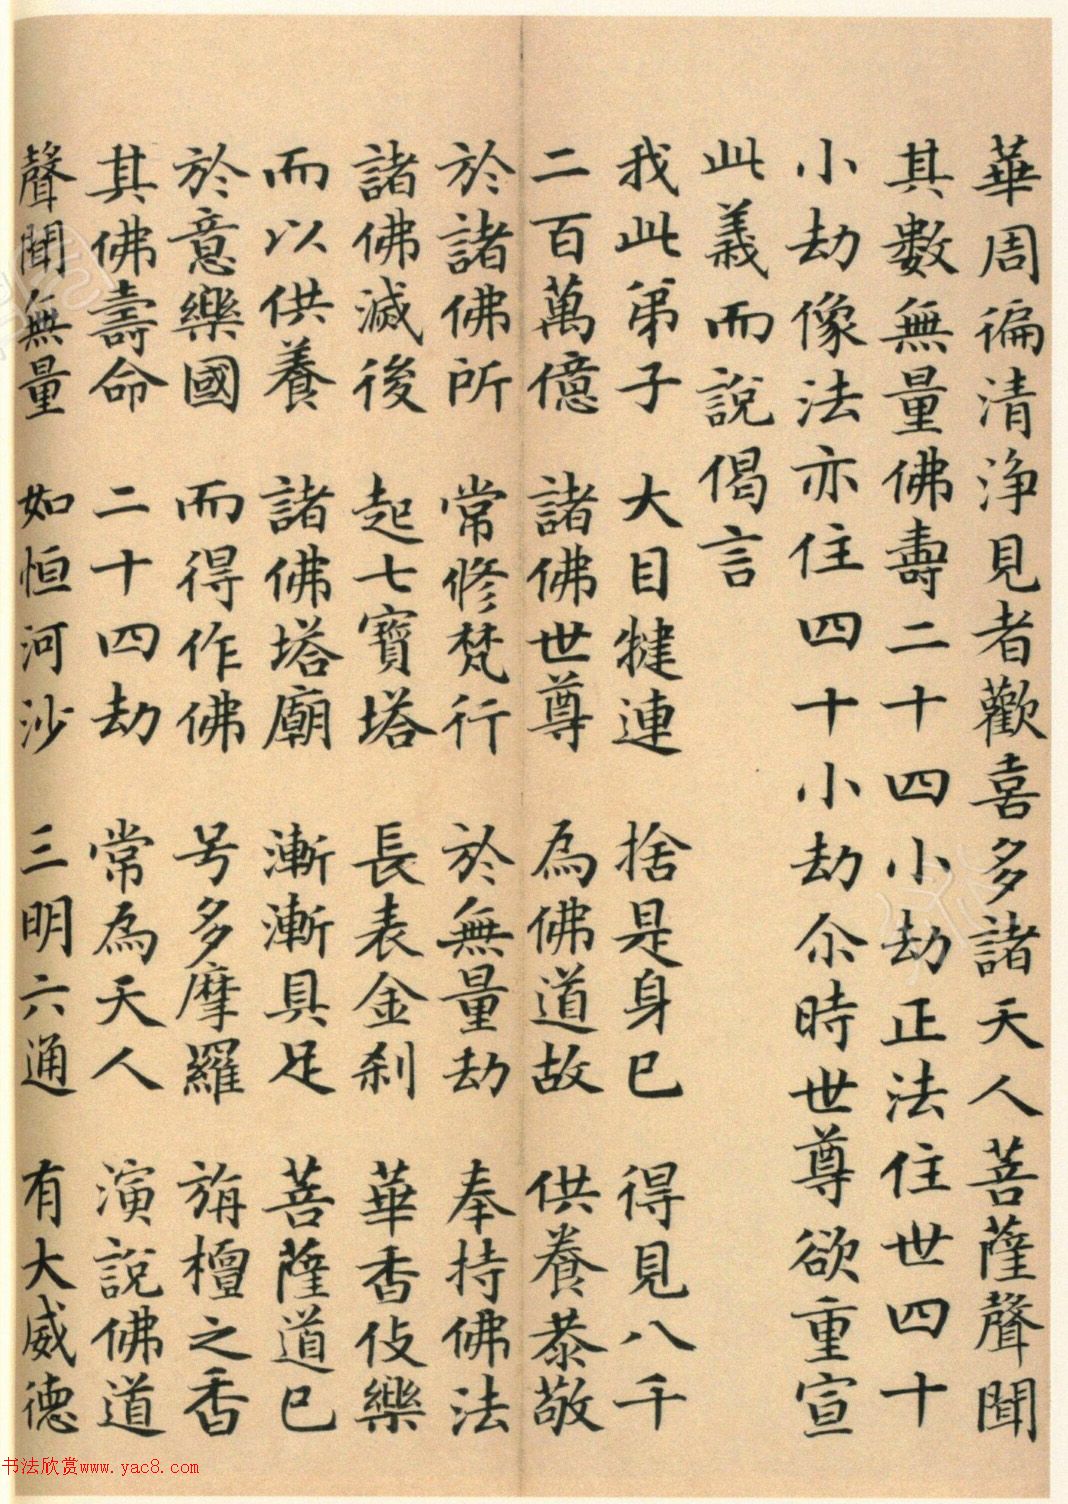 華周徧清淨見者歡喜多諸天人菩薩聲聞
其數無量佛壽二十四小劫正法住世四十
小劫像法亦住四十小劫尒時世尊欲重宣
此義而說偈言
我此弟子 大目犍連 捨是身已 得見八千
二百萬億 諸佛世尊 為佛道故 供養恭敬
於諸佛所 常修梵行 於無量劫 奉持佛法
諸佛滅後 起七寶塔 長表金剎 華香伎樂
而以供養 諸佛塔廟 漸漸具足 菩薩道已
於意樂國 而得作佛 号多摩羅 旃檀之香
其佛壽命 二十四劫 常為天人 演說佛道
聲聞無量 如恒河沙 三明六通 有大威德
书法欣赏www.yac8.com